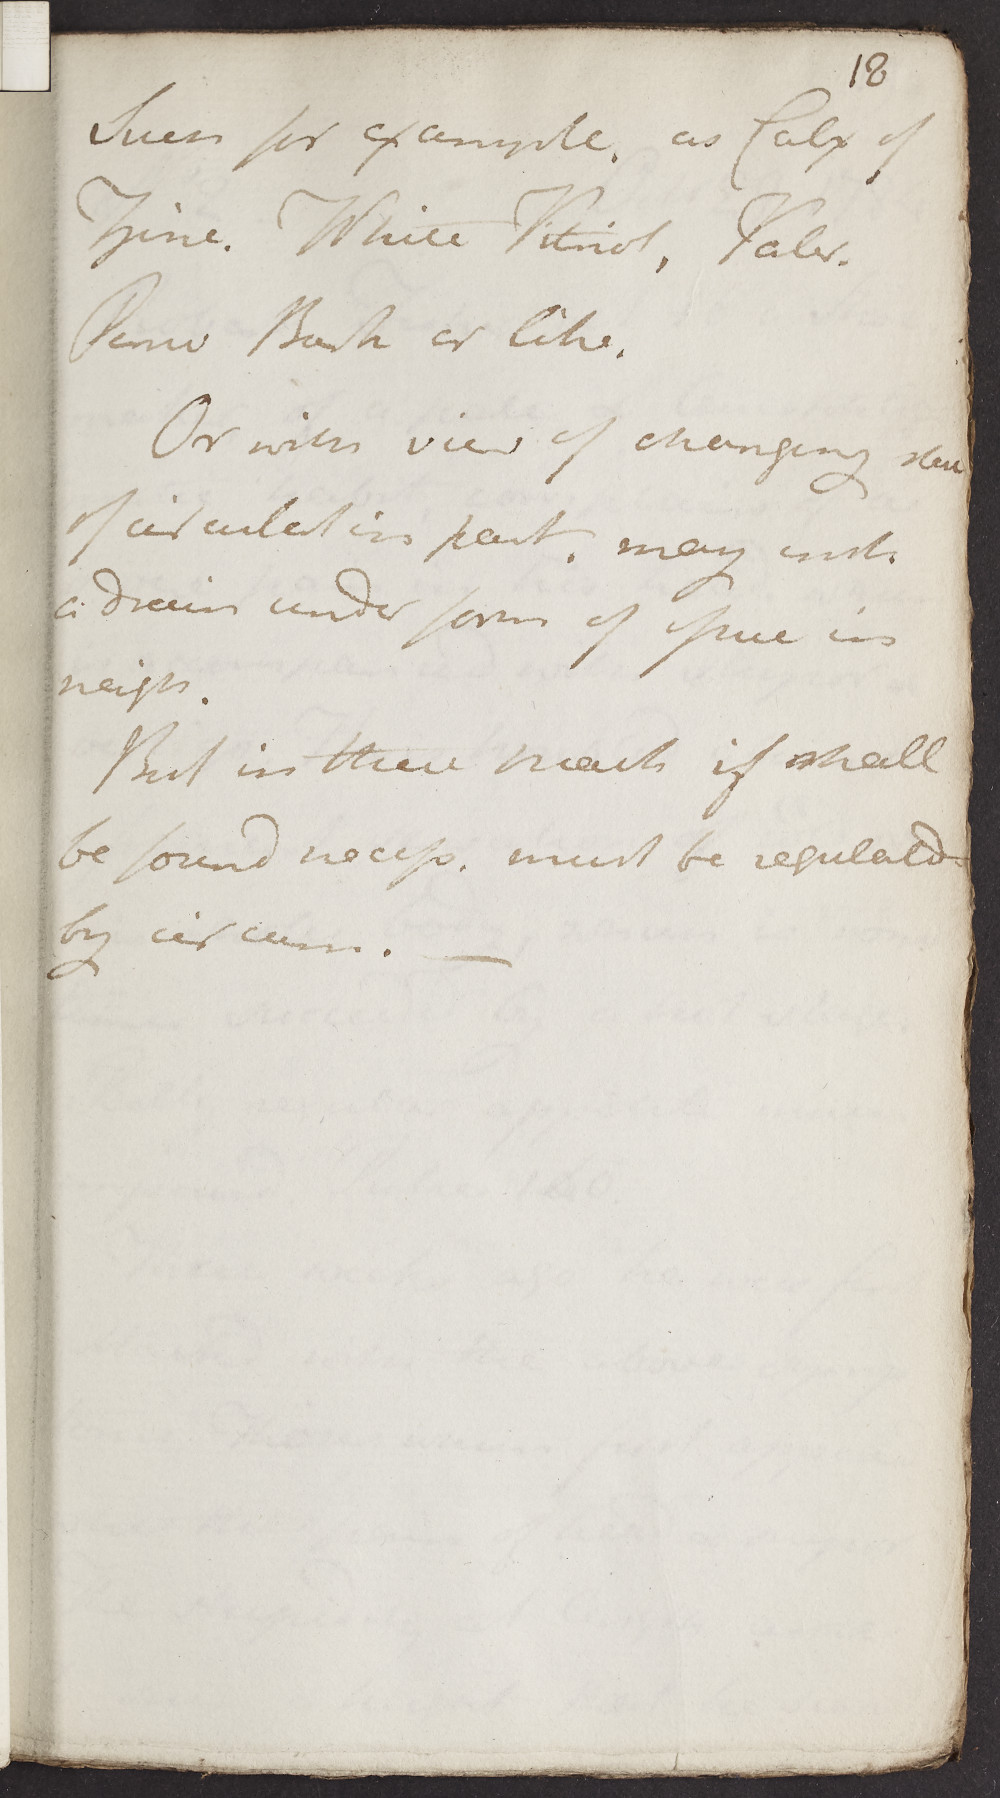 18
Such for example. as Calx of
Zinc. White Vitriol, Valer.
Peruv Bark or like.
Or with view of changing state
of circulat in part. may inst.
a drain under form of issue in
neigh.
But in these marks if shall
be found necess. must be regulatd
by circum. —